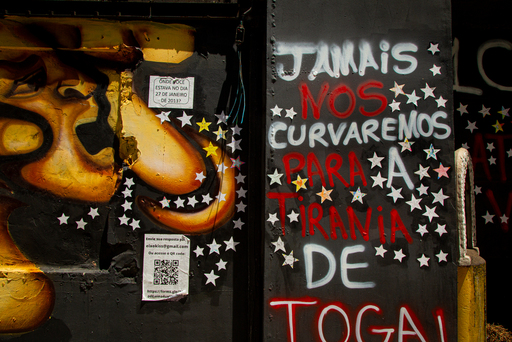 ONDE VOCÊ
ESTAVA NO DIA
27 DE JANEIRO
DE 2013?
JAMAIS
NOS
CURVAREMOS
PARA A
TIRANIA
DE
TOGA!
Envie sua resposta para